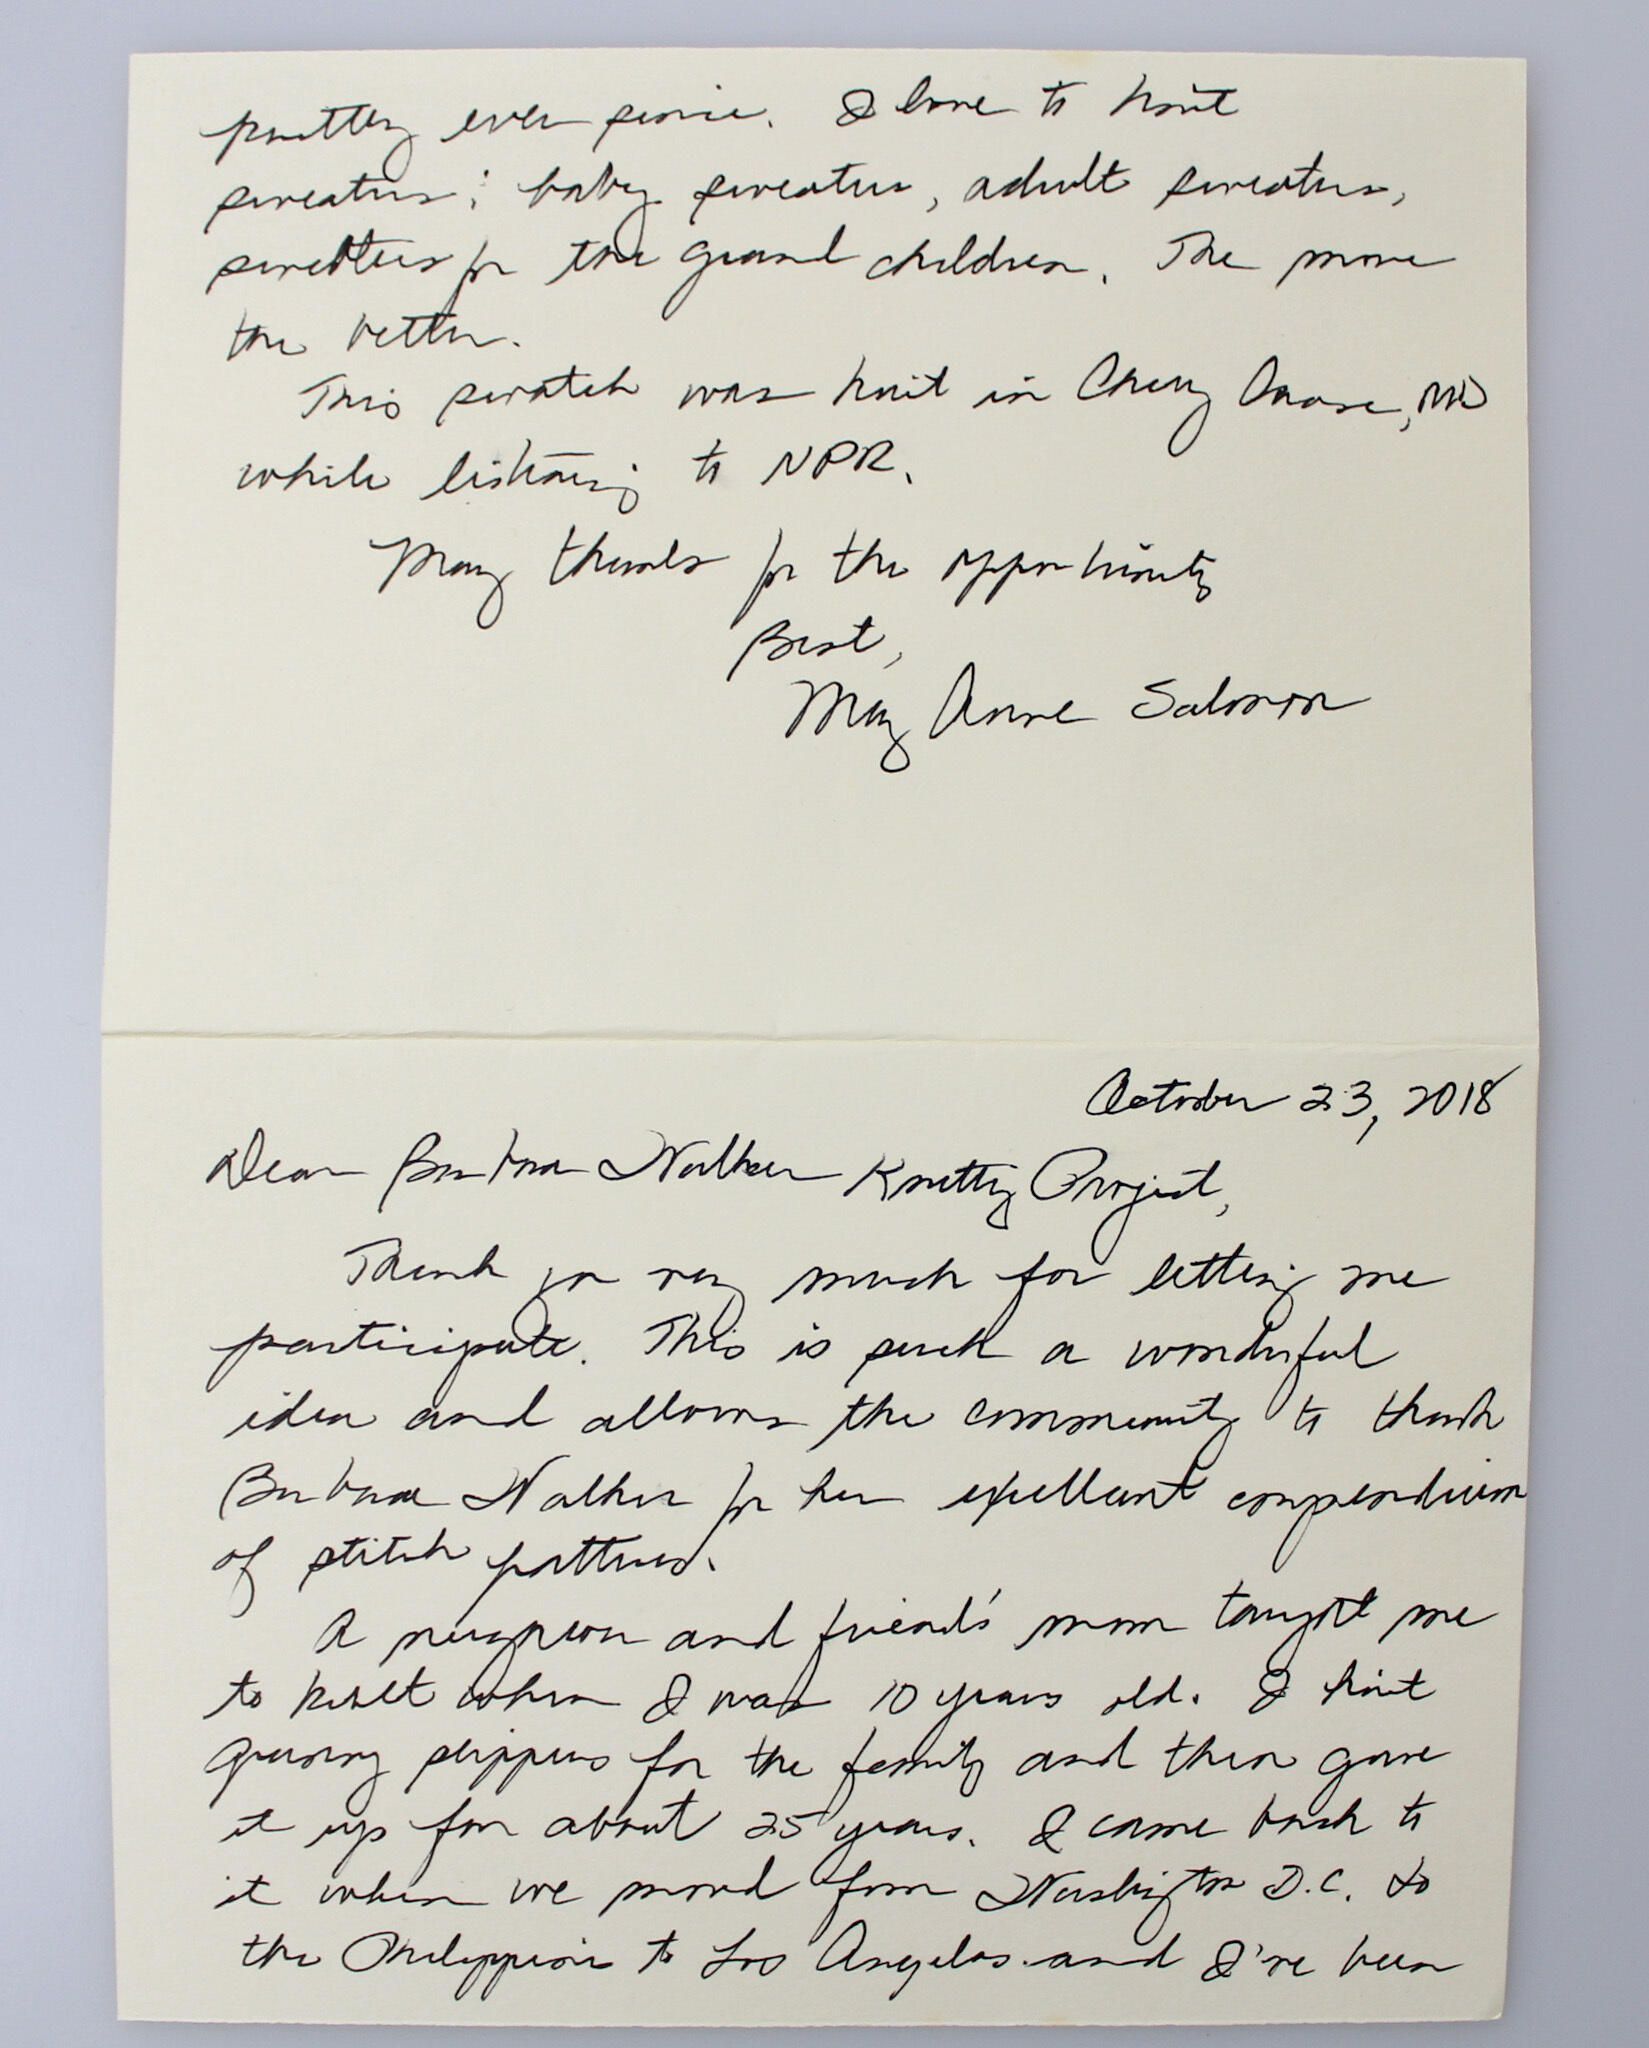 October 23, 2018
Dear Barbara Walker Knitting Project,
Thank you very much for letting me
participate. This is such a wonderful
idea and allows the community to thank
Barbara Walker for her excellent compendium
of stitch patterns.
A neighbor and friend's mom taught me
to knit when I was 10 years old. I knit
granny slippers for the family and then gave
it up for about 25 years. I came back to
it when we moved from Washington D.C. to
the Philippines to Los Angeles and I've been
knitting ever since. I love to knit
sweaters; baby sweaters, adult sweaters,
sweaters for the grand children. The more
the better.
This swatch was knit in Chevy Chase, MD
while listening to NPR.
Many thanks for the opportunity
Best,
Mary Anne Salmon